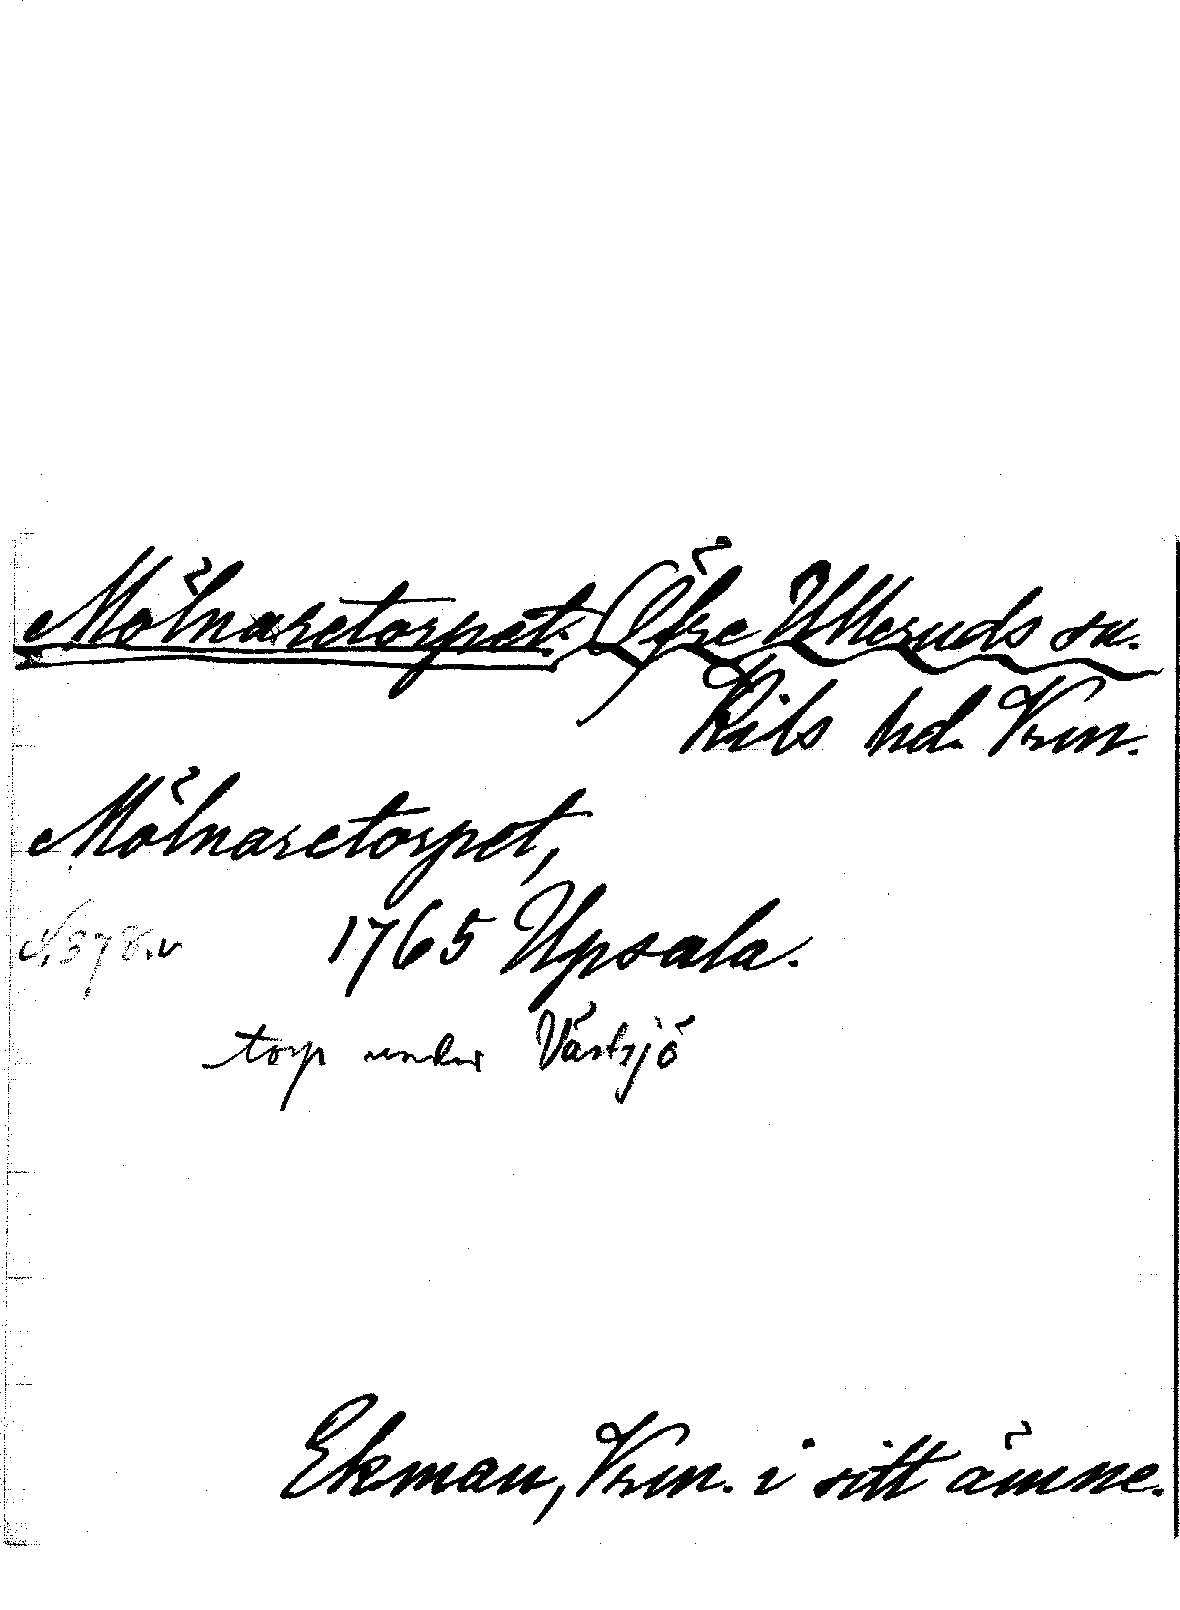 Mölnaretorpet. Öfre Ulleruds sn.
Kils hd. Vrm.
Mölnaretorpet,
s. 378. 1765 Upsala.
torp under Västsjö
Ekman, Vrm. i sitt ämne.